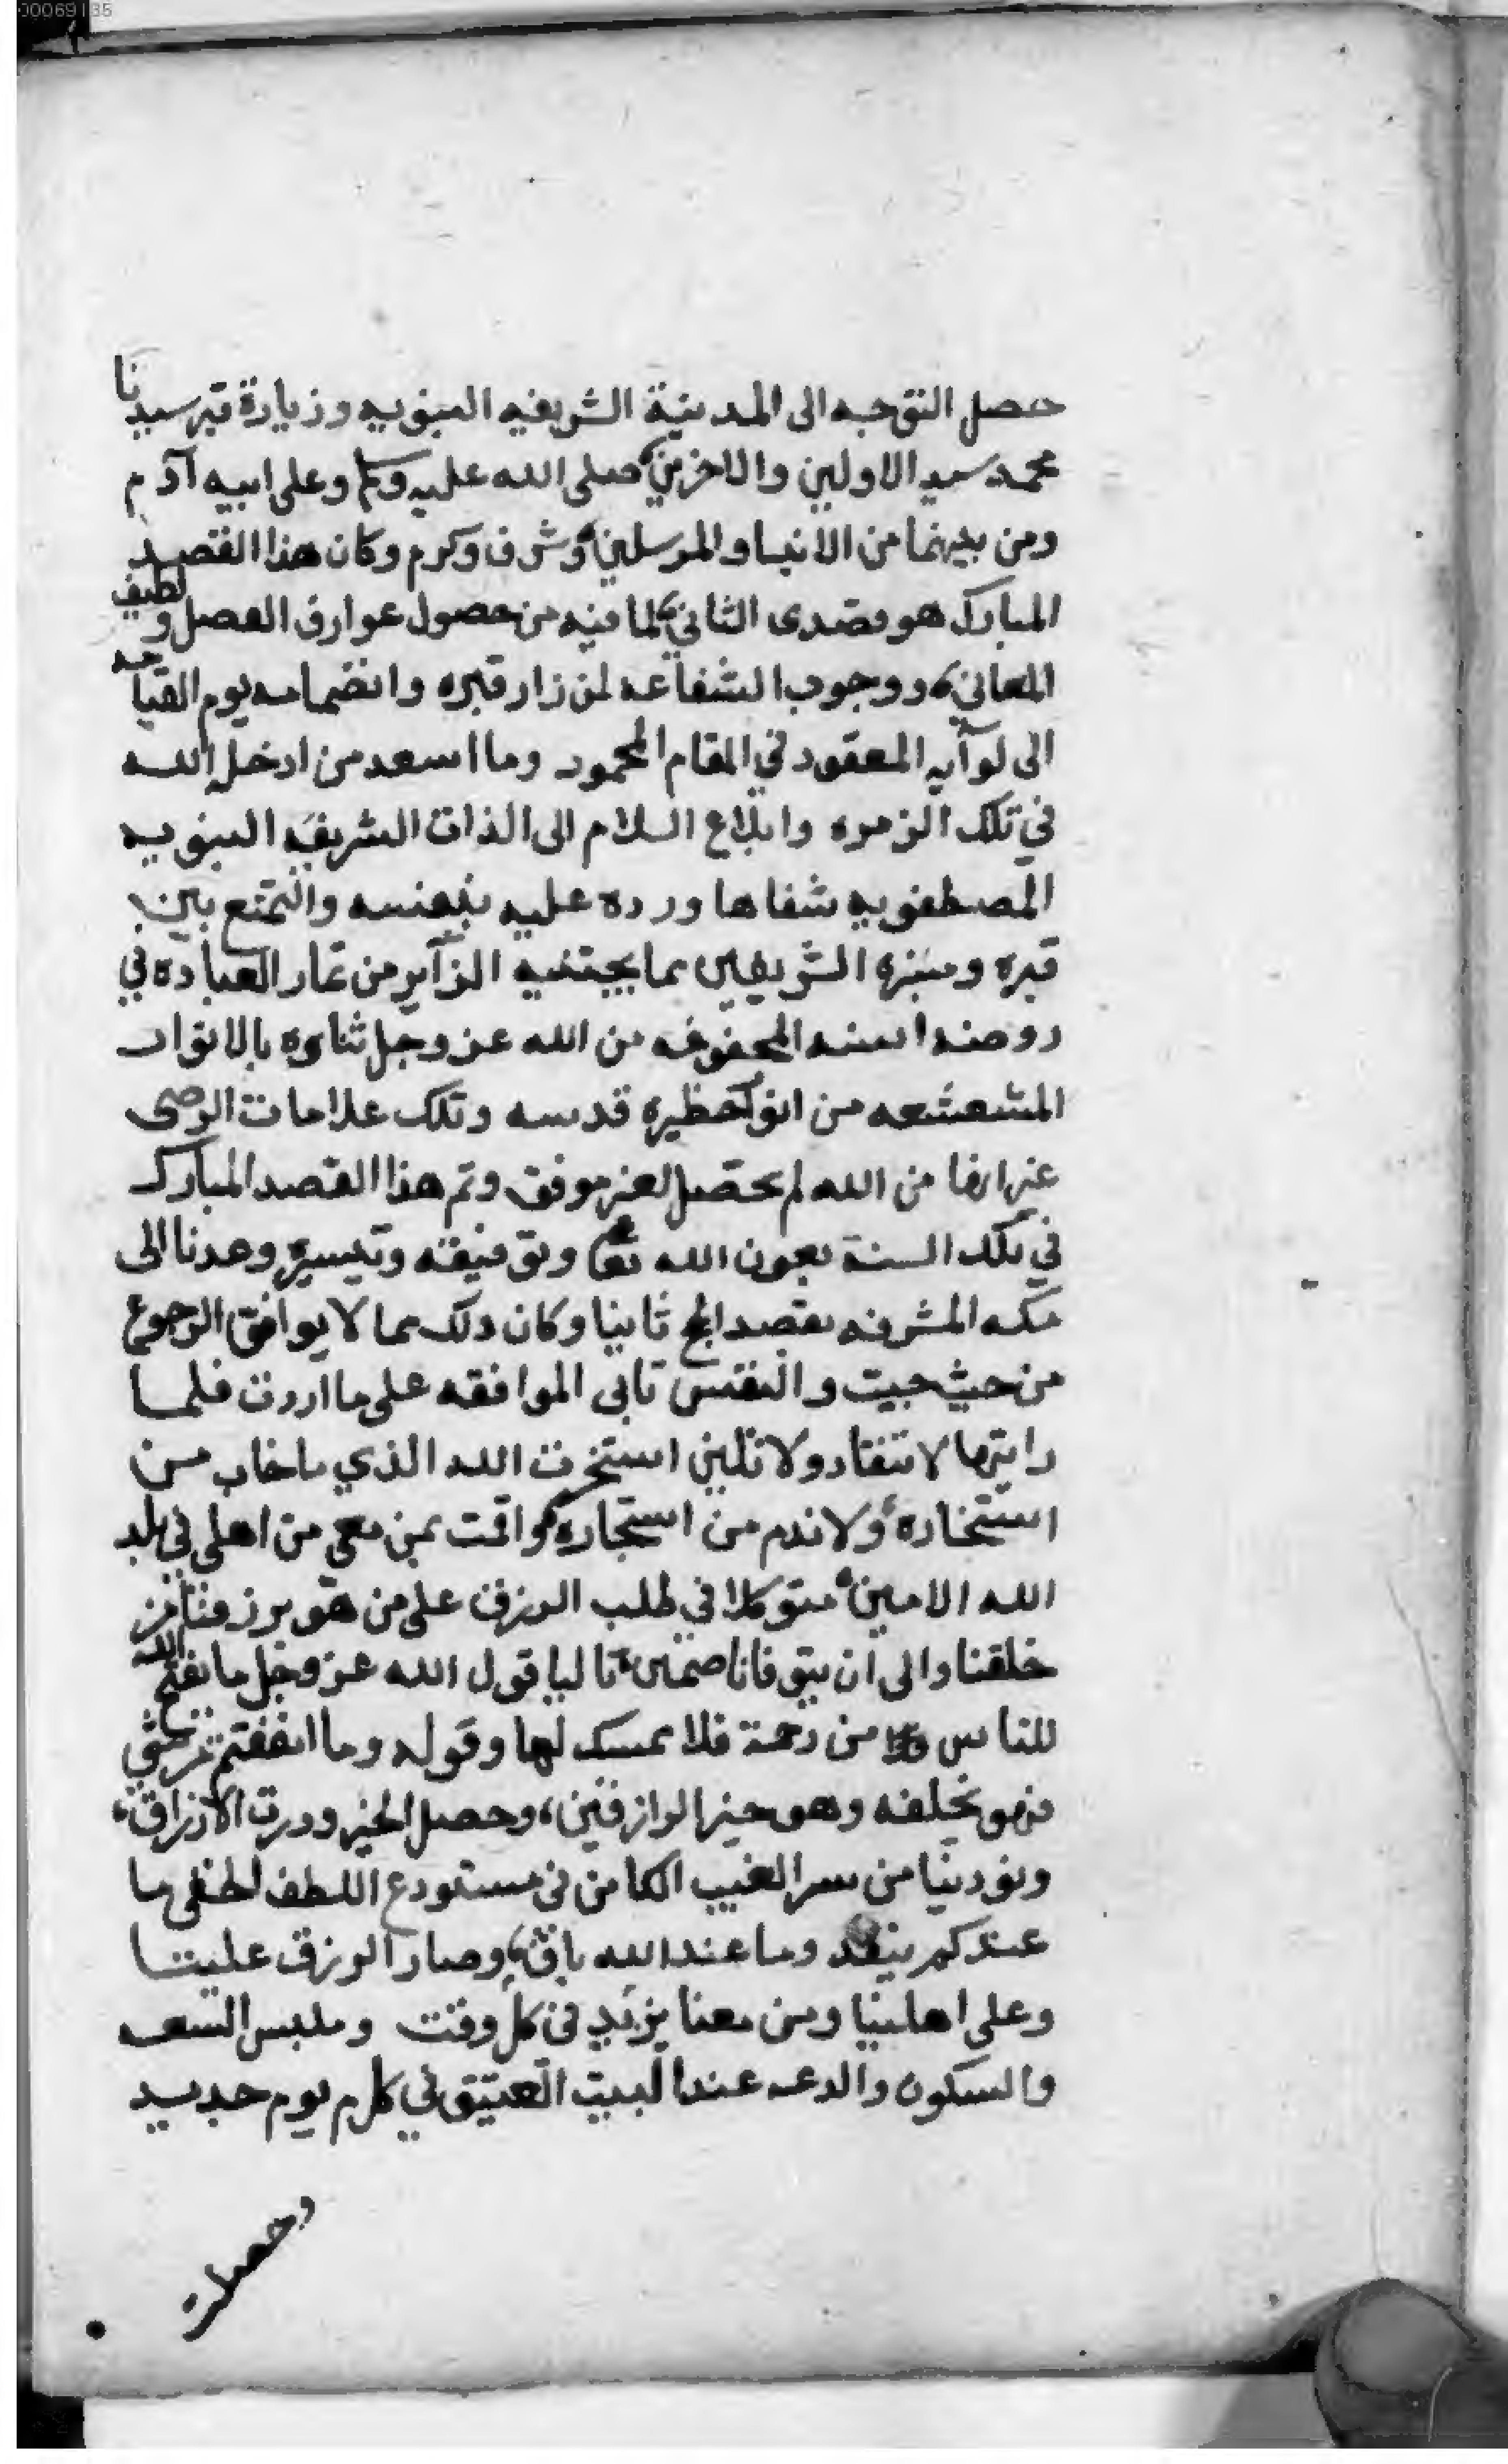 00069135
حصل التوجه الى المدينة الشريفه النبويه وزيارة قبر سيدنا
محمد سيد الاولين والاخرين صلى الله عليه وسلم وعلى ابيه آدم
ومن بينهما من الانبيا والمرسلين وشرف وكرم وكان هذا القصد
المبارك هو قصدى الثاني لما فيه من حصول عوارف الفضل ولطيف
المعاني ووجوب الشفاعه لمن زار قبره وانضمامه يوم القيامه
الى لوآيه المعقود في المقام المحمود وما اسعد من ادخله الله
في تلك الزمره وابلاع السلام الى الذات الشريفه النبويه
المصطفويه شفاها ورده عليه بنفسه والتمتع بين
قبره ومنبره الشريفين بما يجتنيه الزآير من ثمار العباده في
روضة المحفوفه من الله عز وجل ثناوه بالانوار
المشعشعه من انوار حظيره قدسه وتلك علامات الرضى
غير انها من الله لم تحصل لغير موفق وتم هذا القصد المبارك
في تلك السنة بعون الله تعا وتوفيقه وتيسيره وعدنا الى
مكه المشرفه بقصد الحج ثانيا وكان ذلك مما لا يوافق الرجوع
من حيث جيت والنفس تابى الموافقه على ما اردت فلما
رايتها لا تنقاد ولا تلين استخرت الله الذي ما خاب من
استخاره ولا ندم من استجاره واقمت بمن معى من اهلى في بلد
الله الامين متوكلا في طلب الرزق على من هو يرزقنا من
خلقنا والى ان يتوفانا تاليا قول الله عز وجل ما يفتح الله
للناس من رحمة فلا ممسك لها وقوله وما انفقتم من شي
فهو يخلفه وهو خير الرازقين، وحصل الخير ودرت الارزاق،
ونودينا من سر الغيب الكامن في مستودع اللطف الخفى ما
عندكم ينفد وما عند الله باق، وصار الرزق علينا
وعلى اهلينا ومن معنا يزيد في كل وقت وملبس السعه
والسكون والدعه عند البيت العتيق في كل يوم جديد
وحصلت